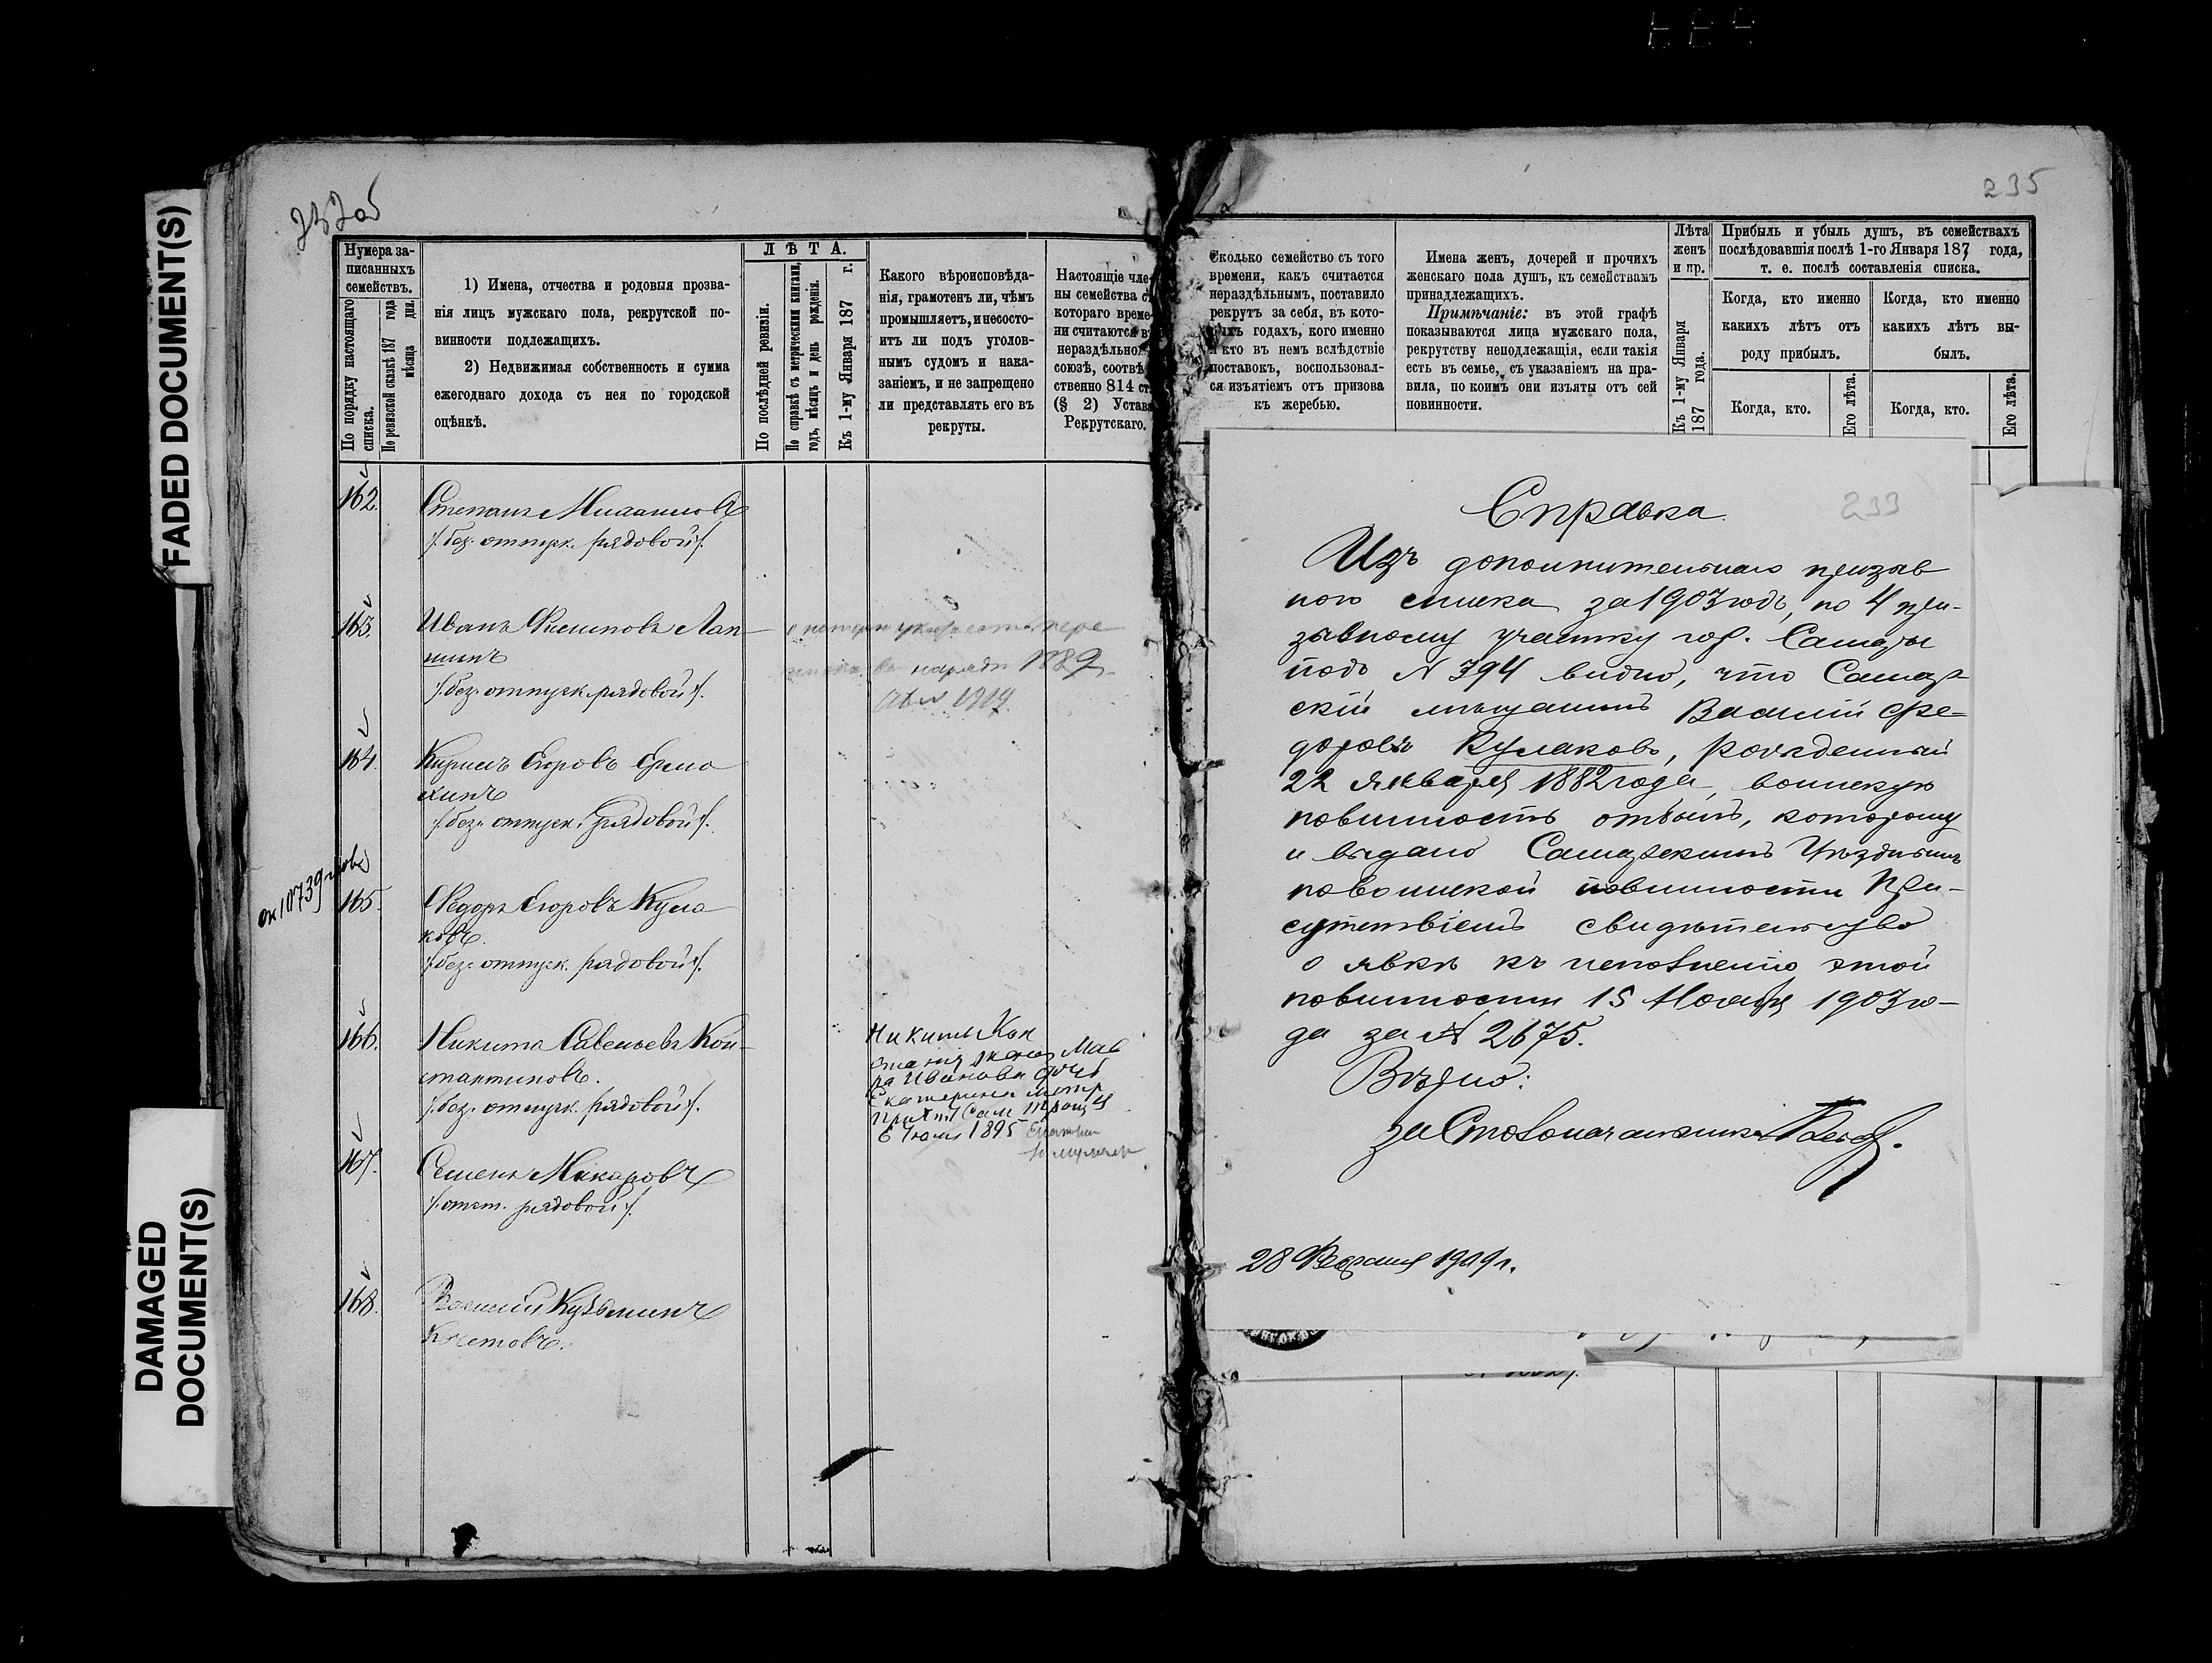 FADED DOCUMENT(S)
DAMAGED
DOCUMENT(S)
235
Нумера за-
писанныхъ
семействъ.
По порядку настоящаго
списка.
По ревизской сказкѣ 187 года
мѣсяца дня.
1) Имена, отчества и родовыя прозва-
нія лицъ мужскаго пола, рекрутской по-
винности подлежащихъ.
2) Недвижимая собственность и сумма
ежегоднаго дохода съ нея по городской
оцѣнкѣ.
ЛѢТА.
По послѣдней ревизіи.
По справкѣ съ метрическими книгами,
годъ, мѣсяцъ и день рожденія.
Къ 1-му Января 187 г.
Какого вѣроисповѣда-
нія, грамотенъ ли, чѣмъ
промышляетъ, и несосто-
итъ ли подъ уголов-
нымъ судомъ и нака-
заніемъ, и не запрещено
ли представлять его въ
рекруты.
Настоящіе чле
ны семейства с
котораго време-
ни считаются в
нераздѣльно
союзѣ, соотвѣ
ственно 814 ст
(§ 2) Устава
Рекрутскаго.
162.
Степанъ Михаиловъ
/. без. отпуск. рядовой /.
163.
Иванъ Филиповъ Лап
шинъ
/. без. отпуск. рядовой /.
1889
1919
164.
Кирилъ Егоровъ Ермо
хинъ
/. без. отпуск. рядовой /.
165.
Ѳедоръ Егоровъ Кула
ковъ.
/. без. отпуск. рядовой /.
166.
Никита Савельевъ Кон-
стантиновъ.
/. без. отпуск. рядовой /.
Никиты Кон
жена Мав
ра Иванова дочь
Екатерина
6 Іюля 1895
167.
Семенъ Макаровъ
/. отст. рядовой /.
168.
Василій Кузьминъ
Сколько семейство съ того
времени, какъ считается
нераздѣльнымъ, поставило
рекрутъ за себя, въ кото-
рыхъ годахъ, кого именно
и кто въ немъ вслѣдствіе
поставокъ, воспользовал-
ся изъятіемъ отъ призова
къ жеребью.
Имена женъ, дочерей и прочихъ
женскаго пола душъ, къ семействамъ
принадлежащихъ.
Примѣчаніе: въ этой графѣ
показываются лица мужскаго пола,
рекрутству неподлежащія, если такія
есть въ семьѣ, съ указаніемъ на пра-
вила, по коимъ они изъяты отъ сей
повинности.
Лѣта
женъ
и пр.
Къ 1-му Января
187 года.
Прибыль и убыль душъ, въ семействахъ
послѣдовавшія послѣ 1-го Января 187 года,
т. е. послѣ составленія списка.
Когда, кто именно
какихъ лѣтъ отъ
роду прибылъ.
Когда, кто именно
какихъ лѣтъ вы-
былъ.
Когда, кто.
Его лѣта.
Когда, кто.
Его лѣта.
Справка
233
Изъ дополнительнаго призыв
ного списка за 1903 годъ, по 4 при-
зывному участку гор. Самары
подъ № 394 видно, что Самар-
скій мѣщанинъ Василій Ѳе-
доровъ Кулаковъ, рожденный
22 Января 1882 года, воинскую
повинность отбылъ, которому
и выдано Самарскимъ Уѣзднымъ
по воинской повинности При-
сутствіемъ свидѣтельство
о явкѣ къ исполненію этой
повинности 15 Ноября 1903 го-
да за № 2675.
Вѣрно:
за Столоначальника
28 Февраля 1909 г.